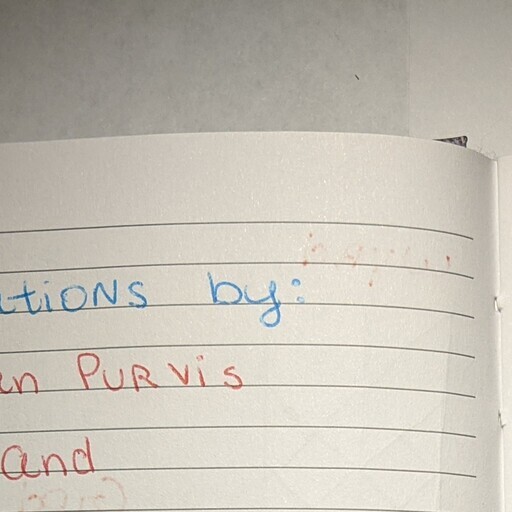 ations by:
en Purvis
and